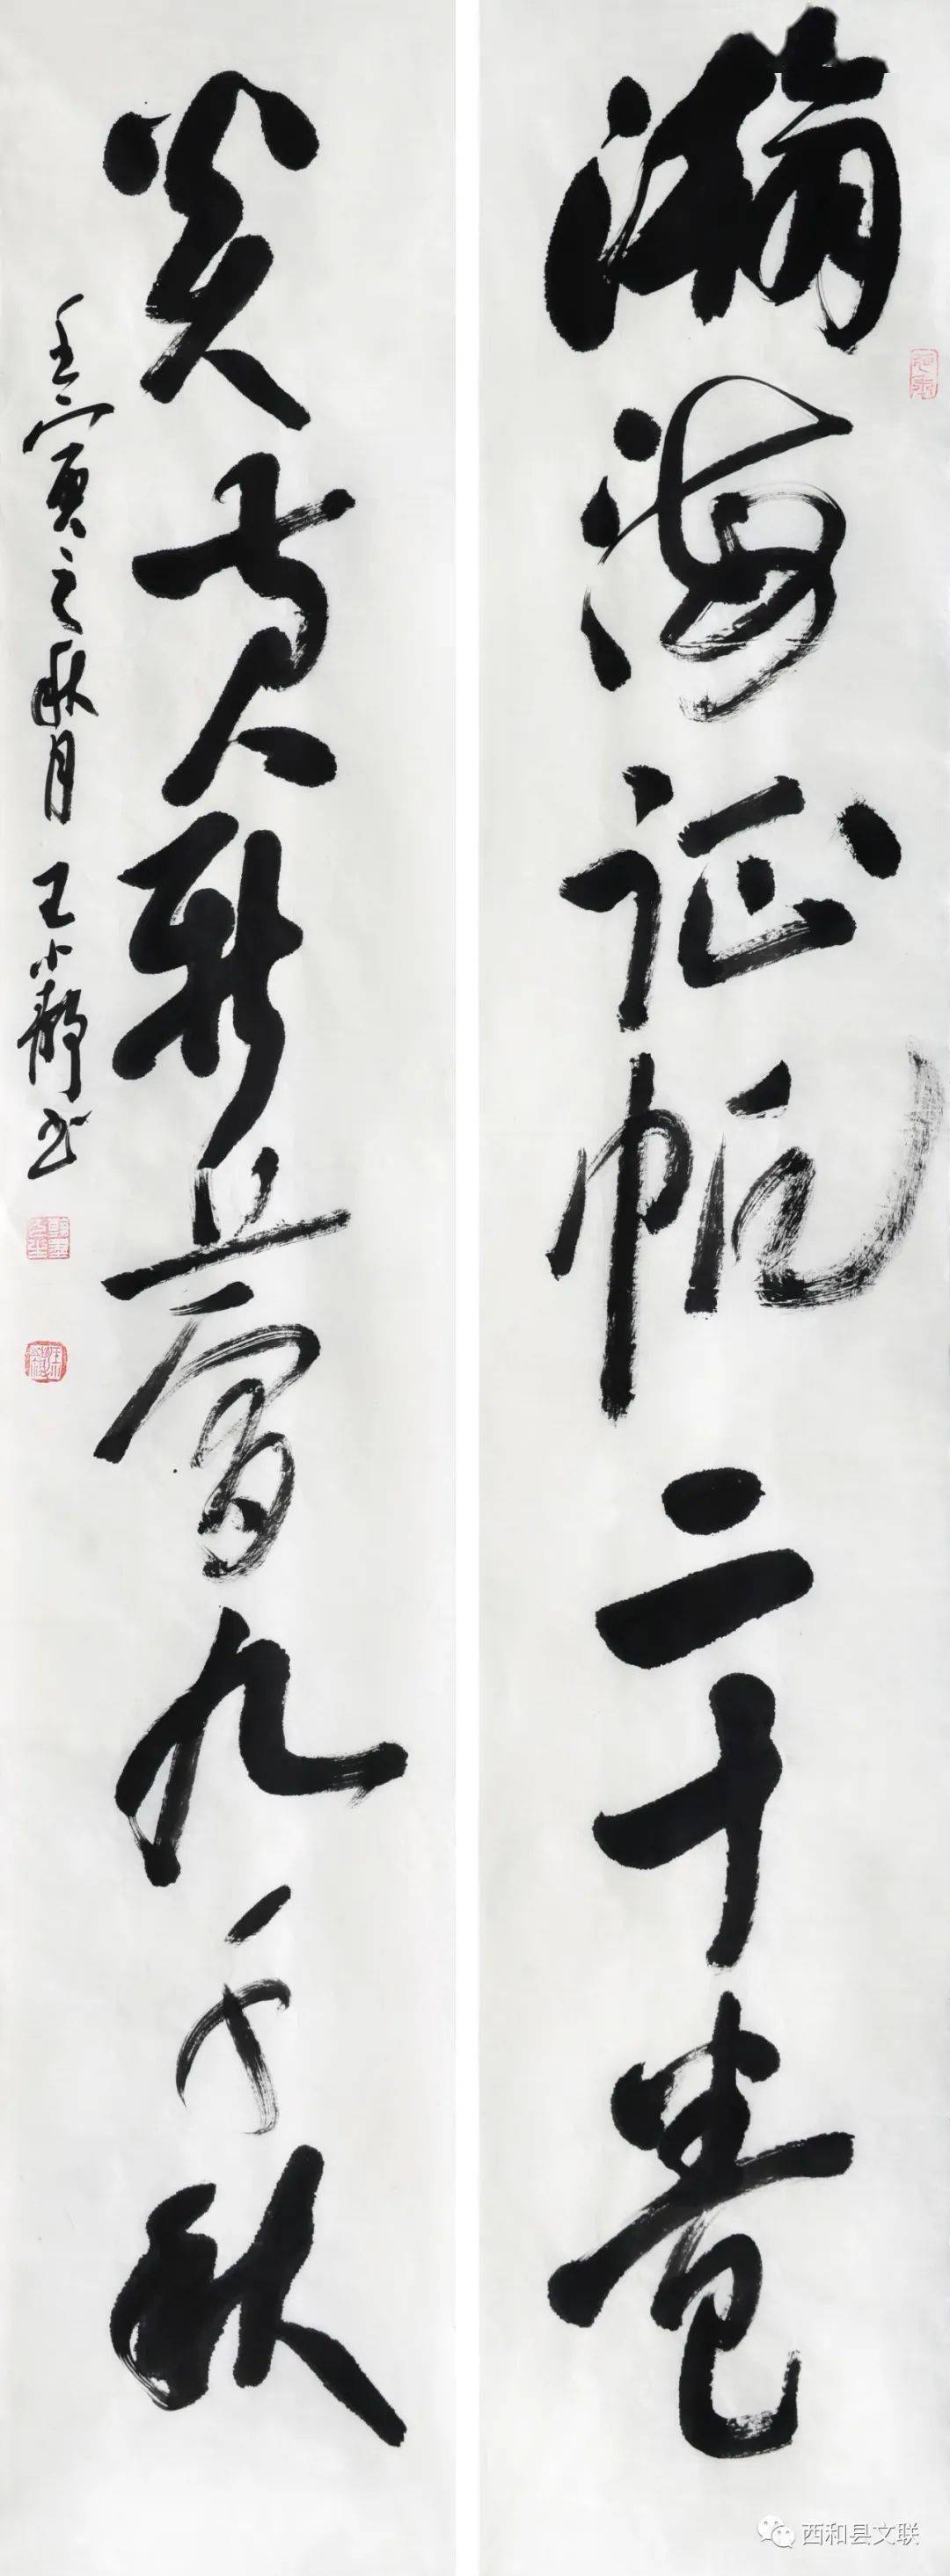 瀚海征帆二十卷
炎黄新夢九千秋
壬寅之秋月 王小静书
西和县文联